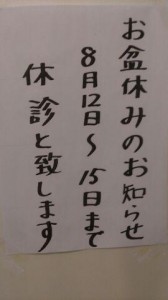 お盆休みのお知らせ
8月12日~15日まで
休診と致します